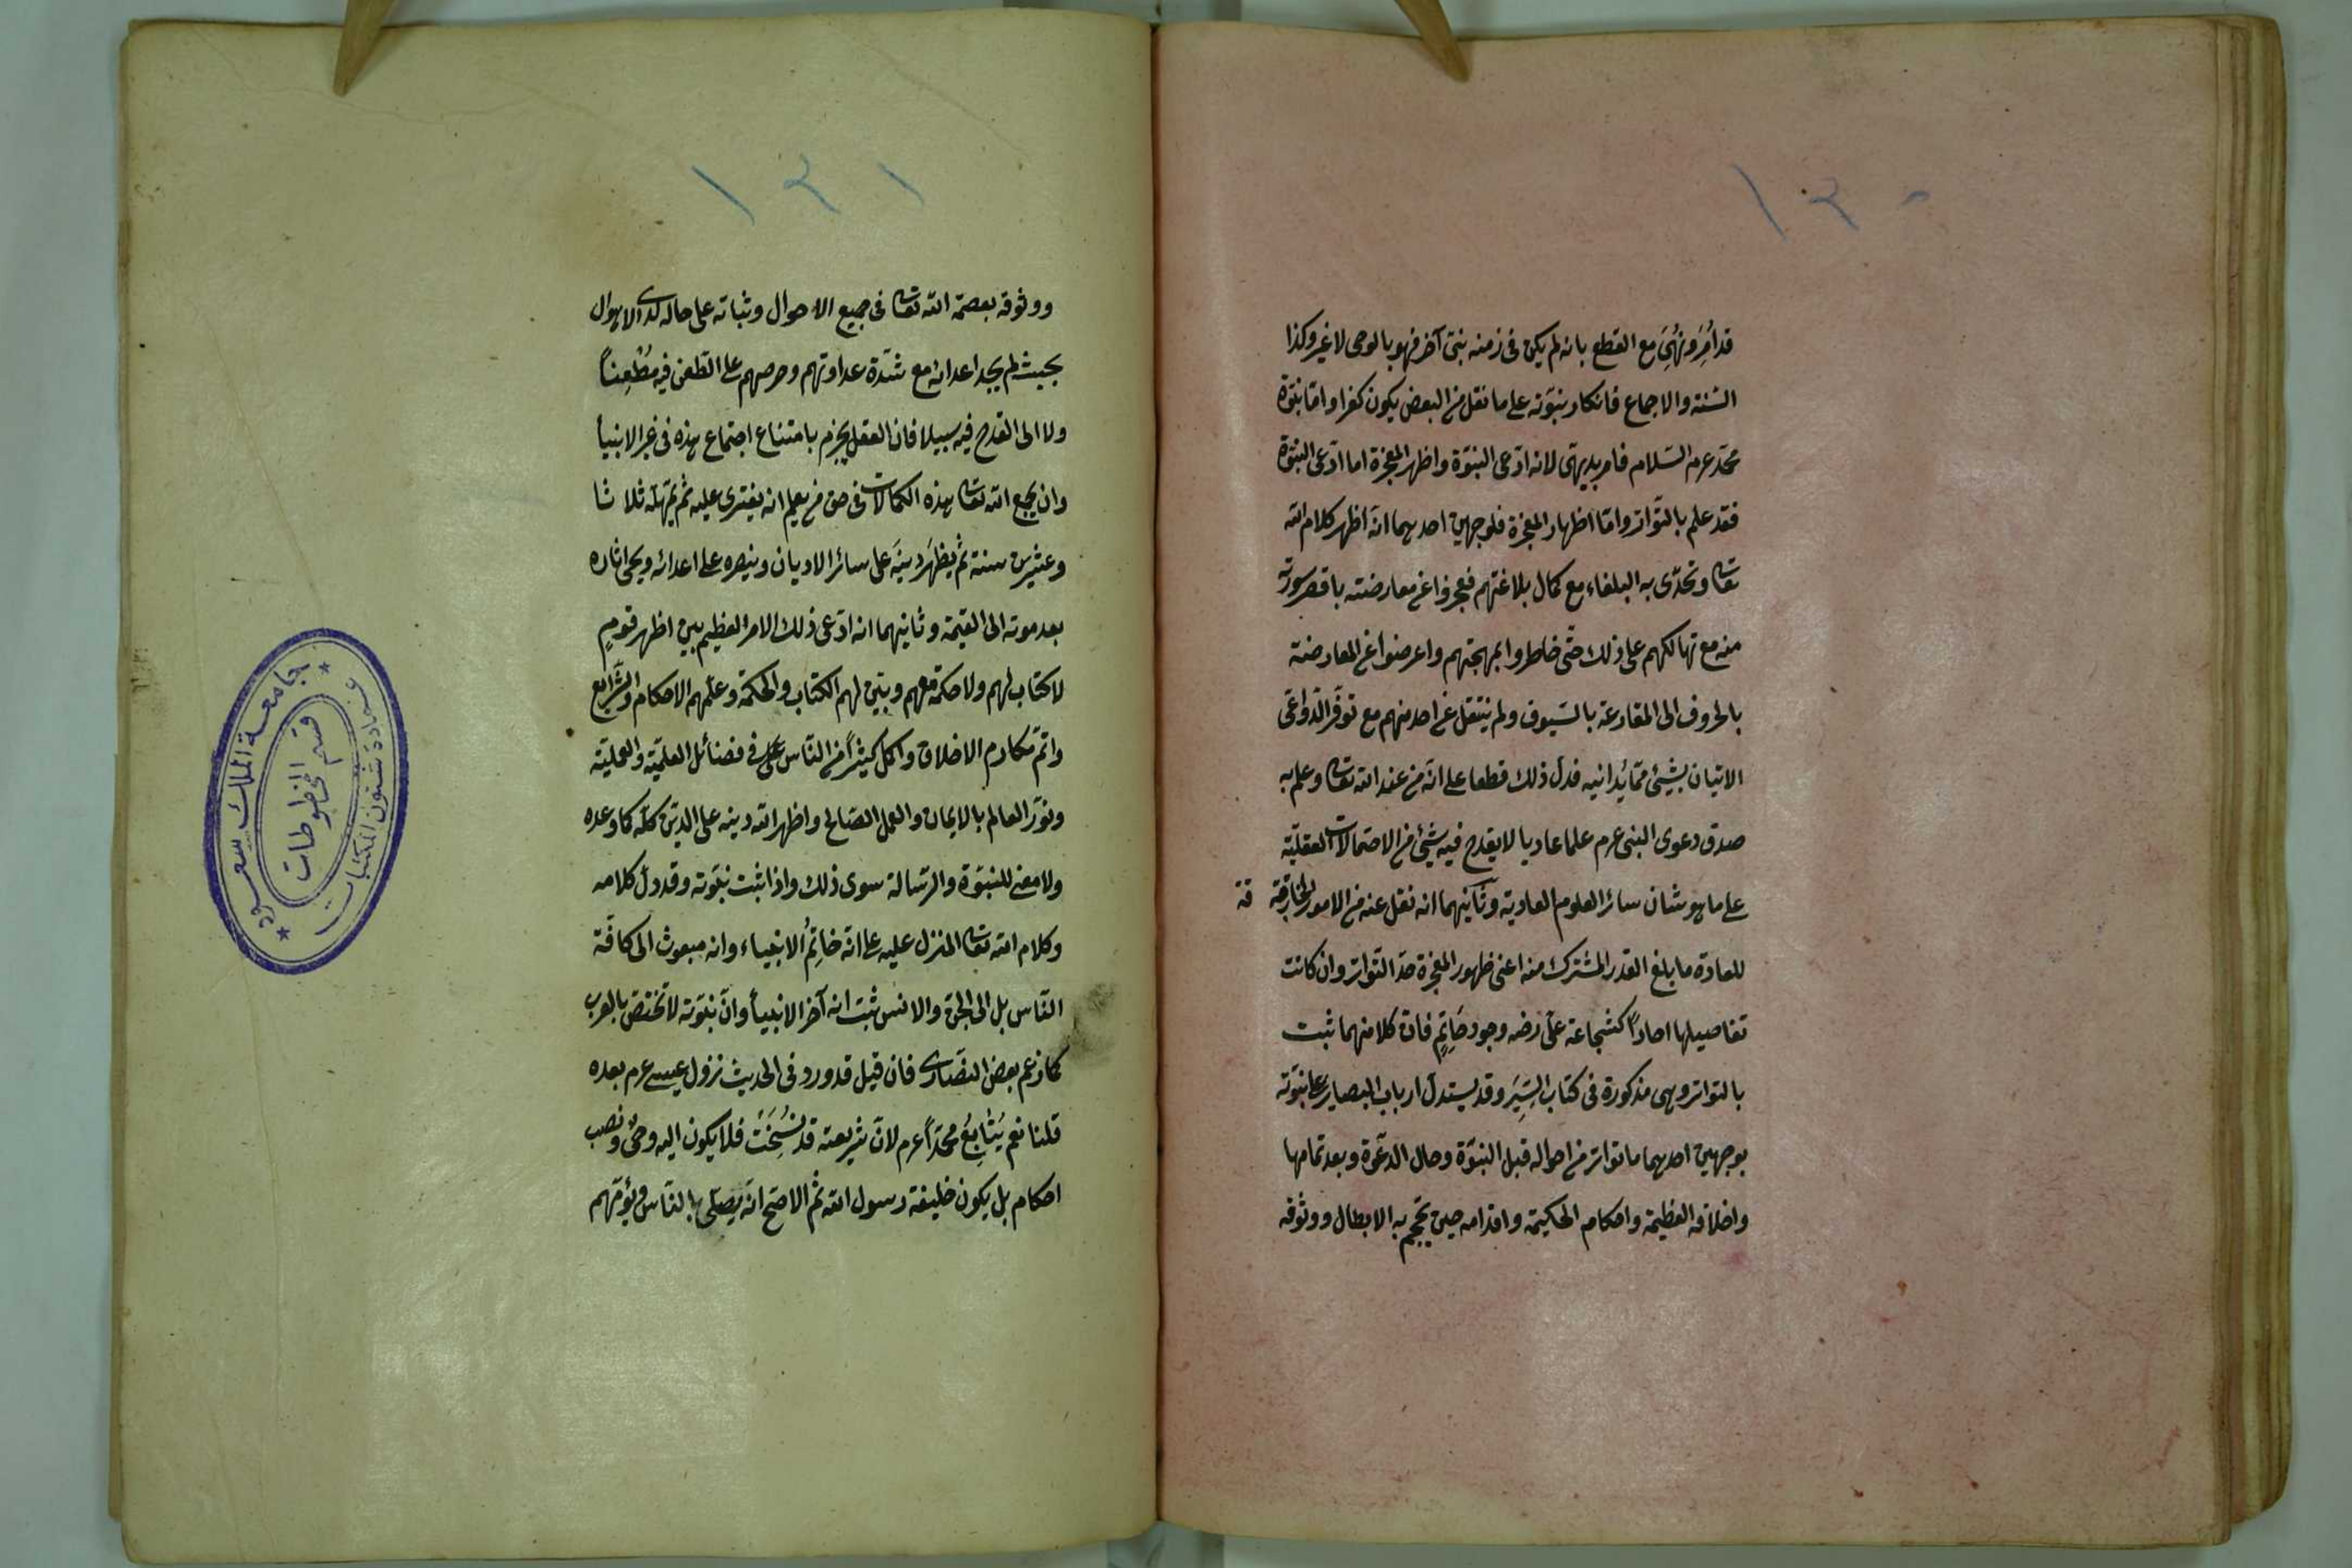 ١٢٠
قد اُمِرَ ونُهِىَ مع القطع بانه لم يكن فى زمنه نبىّ آخر فهو بالوحى لا غير وكذا
السّنة والاجماع فانكار نبوّته على ما نقل من البعض يكون كفرا وامّا نبوّة
محمّد عم السّلام فامر بديهىّ لانه ادّعى النبوّة واظهر المعجزة اما ادّعى النبوّة
فقد علم بالتّواتر وامّا اظهار المعجزة فلوجهين احدهما انّه اظهر كلام الله
تعا وتحدّى به البلغاء مع كمال بلاغتهم فعجزوا عن معارضته باقصر سورة
منه مع تهالكهم على ذلك حتّى خاطروا بمهجتهم واعرضوا عن المعارضة
بالحروف الى المقارعة بالسّيوف ولم ينتقل عن احد منهم مع توفّر الدّواعى
الاتيان بشيئ ممّا يدانيه فدلّ ذلك قطعا على انّه من عند الله تعا وعلم به
صدق دعوى النبى عم علما عاديا لا يقدح فيه شيئ من الاحتمالات العقليّة
على ما هو شان سائر العلوم العادية وثانيهما انه نقل عنه من الامور الخارقة
قة
للعادة ما بلغ القدر المشترك منه اعنى ظهور المعجزة حدّ التّواتر وان كانت
تفاصيلها احادًا كشجاعة علىّ رضه وجود حَاتِمٍ فانّ كلا منهما ثبت
بالتواتر وهى مذكورة فى كتاب السِّيَرِ وقد يستدلّ ارباب البصاير على نبوّته
بوجهين احدهما ما تواتر من احواله قبل النبوّة وحال الدعوة وبعد تمامها
واخلاقه العظيمة واحكامه الحكيمة واقدامه حين تحجم به الابطال ووثوقه
١٢١
ووثوقه بعصمة الله تعا فى جميع الاحوال وثباته على حاله لدى الاهوال
بحيث لم يجد اعدائه مع شدّة عداوتهم وحرصهم على الطّعن فيه مُطْعِناً
ولا الى القدح فيه سبيلا فان العقل يجزم بامتناع اجتماع هذه فى غير الانبيأ
وان يجمع الله تعا هذه الكمالات فى حق من يعلم انه يفترى عليه ثم يمهله ثلاثا
وعشرين سنة ثم يظهَر دينَه على سائر الاديان وينصره على اعدائه ويحى اثاره
بعد موته الى القيمة وثانيهما انه ادّعى ذلك الامر العظيم بين اظهر قومٍ
لا كتاب لهم ولا حكمة معهم وبيّن لهم الكتاب والحكمة وعلّمهم الاحكام والشّرايع
واتمّ مكارم الاخلاق واكمل كثيراً من النّاس فى فضائل العلميّة والعمليّة
ونوّر العالم بالايمان والعمل الصّالح واظهر الله دينه على الدين كلّه كما وعده
ولا معنى للنبوّة والرّسالة سوى ذلك واذا ثبت نبوّته وقد دلّ كلامه
وكلام الله تعا المنزل عليه على انّه خاتِمُ الانبياء وانه مبعوث الى كافّة
النّاس بل الى الجنّ والانس ثبت انه آخر الانبيأ وانّ نبوّته لا تختصّ بالعرب
كما زعم بعض النصّارى فان قيل قد ورد فى الحديث نزول عيسى عم بعده
قلنا نعم يُتَابِعُ محمّداً عم لانّ شريعته قد نُسِخَتْ فلا يكون اليه وحىٌ ونصب
احكام بل يكون خليفة رسول الله ثم الاصحّ انّه يصلّى بالنّاس ويؤمّهم
جامعة الملك سعود
عمادة شئون المكتبات
قسم المخطوطات